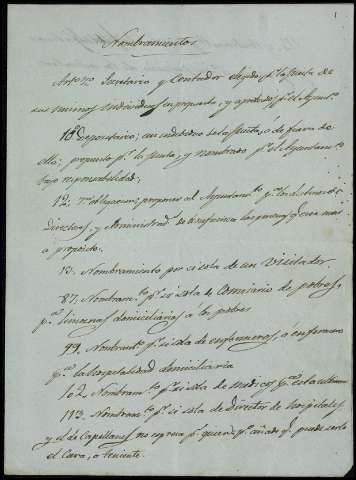 1
Nombramientos
Artº 7º Secretario y Contador elejidos pr la Junta de
sus mismos individuos en propuesta, y aprobados pr el Ayuntº.
10 Depositario; un individuo de la Junta, ó de fuera de
ella; propuesto pr la Junta, y nombrado pr el Ayuntamto
bajo responsabilidad.
12. proponer al Ayuntamto pr los destinos de
Directores, y Administrads de Beneficencia las personas q crea mas
a propósito.
13. Nombramiento por si sola de un Visitador
87. Nombramto pr si sola de Comisario de pobres,
pa limosnas domiciliarias á los pobres
99. Nombramto pr si sola de enfermeros, ó enfermeras
pa la hospitalidad domiciliaria
102. Nombramto pr si sola de Medicos
113. Nombramto pr si sola de Director de Hospitales,
y el de Capellanes no espresa pr quien pr añade q puede serlo
el Cura, o teniente.